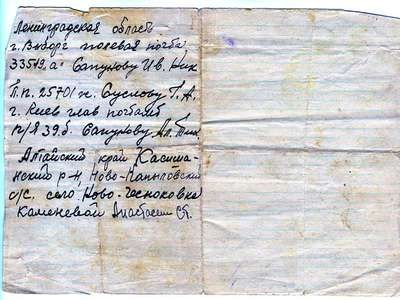 Ленинградская область
г. Выборг полевая почта
33519.а. Сапунову Ив. Ник
П.п. 25701 ж. Суслову Г. А.
г. Киев глав почтамт
п/я 39.б. Сапунову Ал.
Алтайский край
район, Ново-
с/с. село Ново-Чесноковка
Каменевой Анастасии Ст.